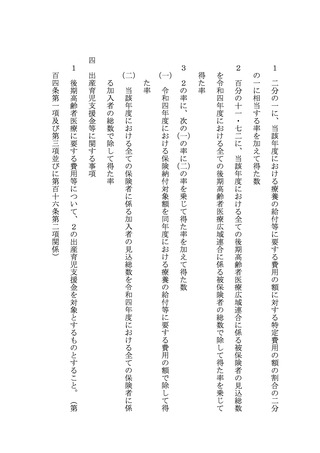 １　二分の一に、当該年度における療養の給付等に要する費用の額に対する特定費用の額の割合の二分
の一に相当する率を加えて得た数
２　百分の十一・七二に、当該年度における全ての後期高齢者医療広域連合に係る被保険者の見込総数
を令和四年度における全ての後期高齢者医療広域連合に係る被保険者の総数で除して得た率を乗じて
得た率
３　２の率に、次の㈠の率に㈡の率を乗じて得た率を加えて得た数
㈠　令和四年度における保険納付対象額を同年度における療養の給付等に要する費用の額で除して得
た率
㈡　当該年度における全ての保険者に係る加入者の見込総数を令和四年度における全ての保険者に係
る加入者の総数で除して得た率
四　出産育児支援金等に関する事項
１　後期高齢者医療に要する費用等について、２の出産育児支援金を対象とするものとすること。（第
百四条第一項及び第三項並びに第百十六条第二項関係）